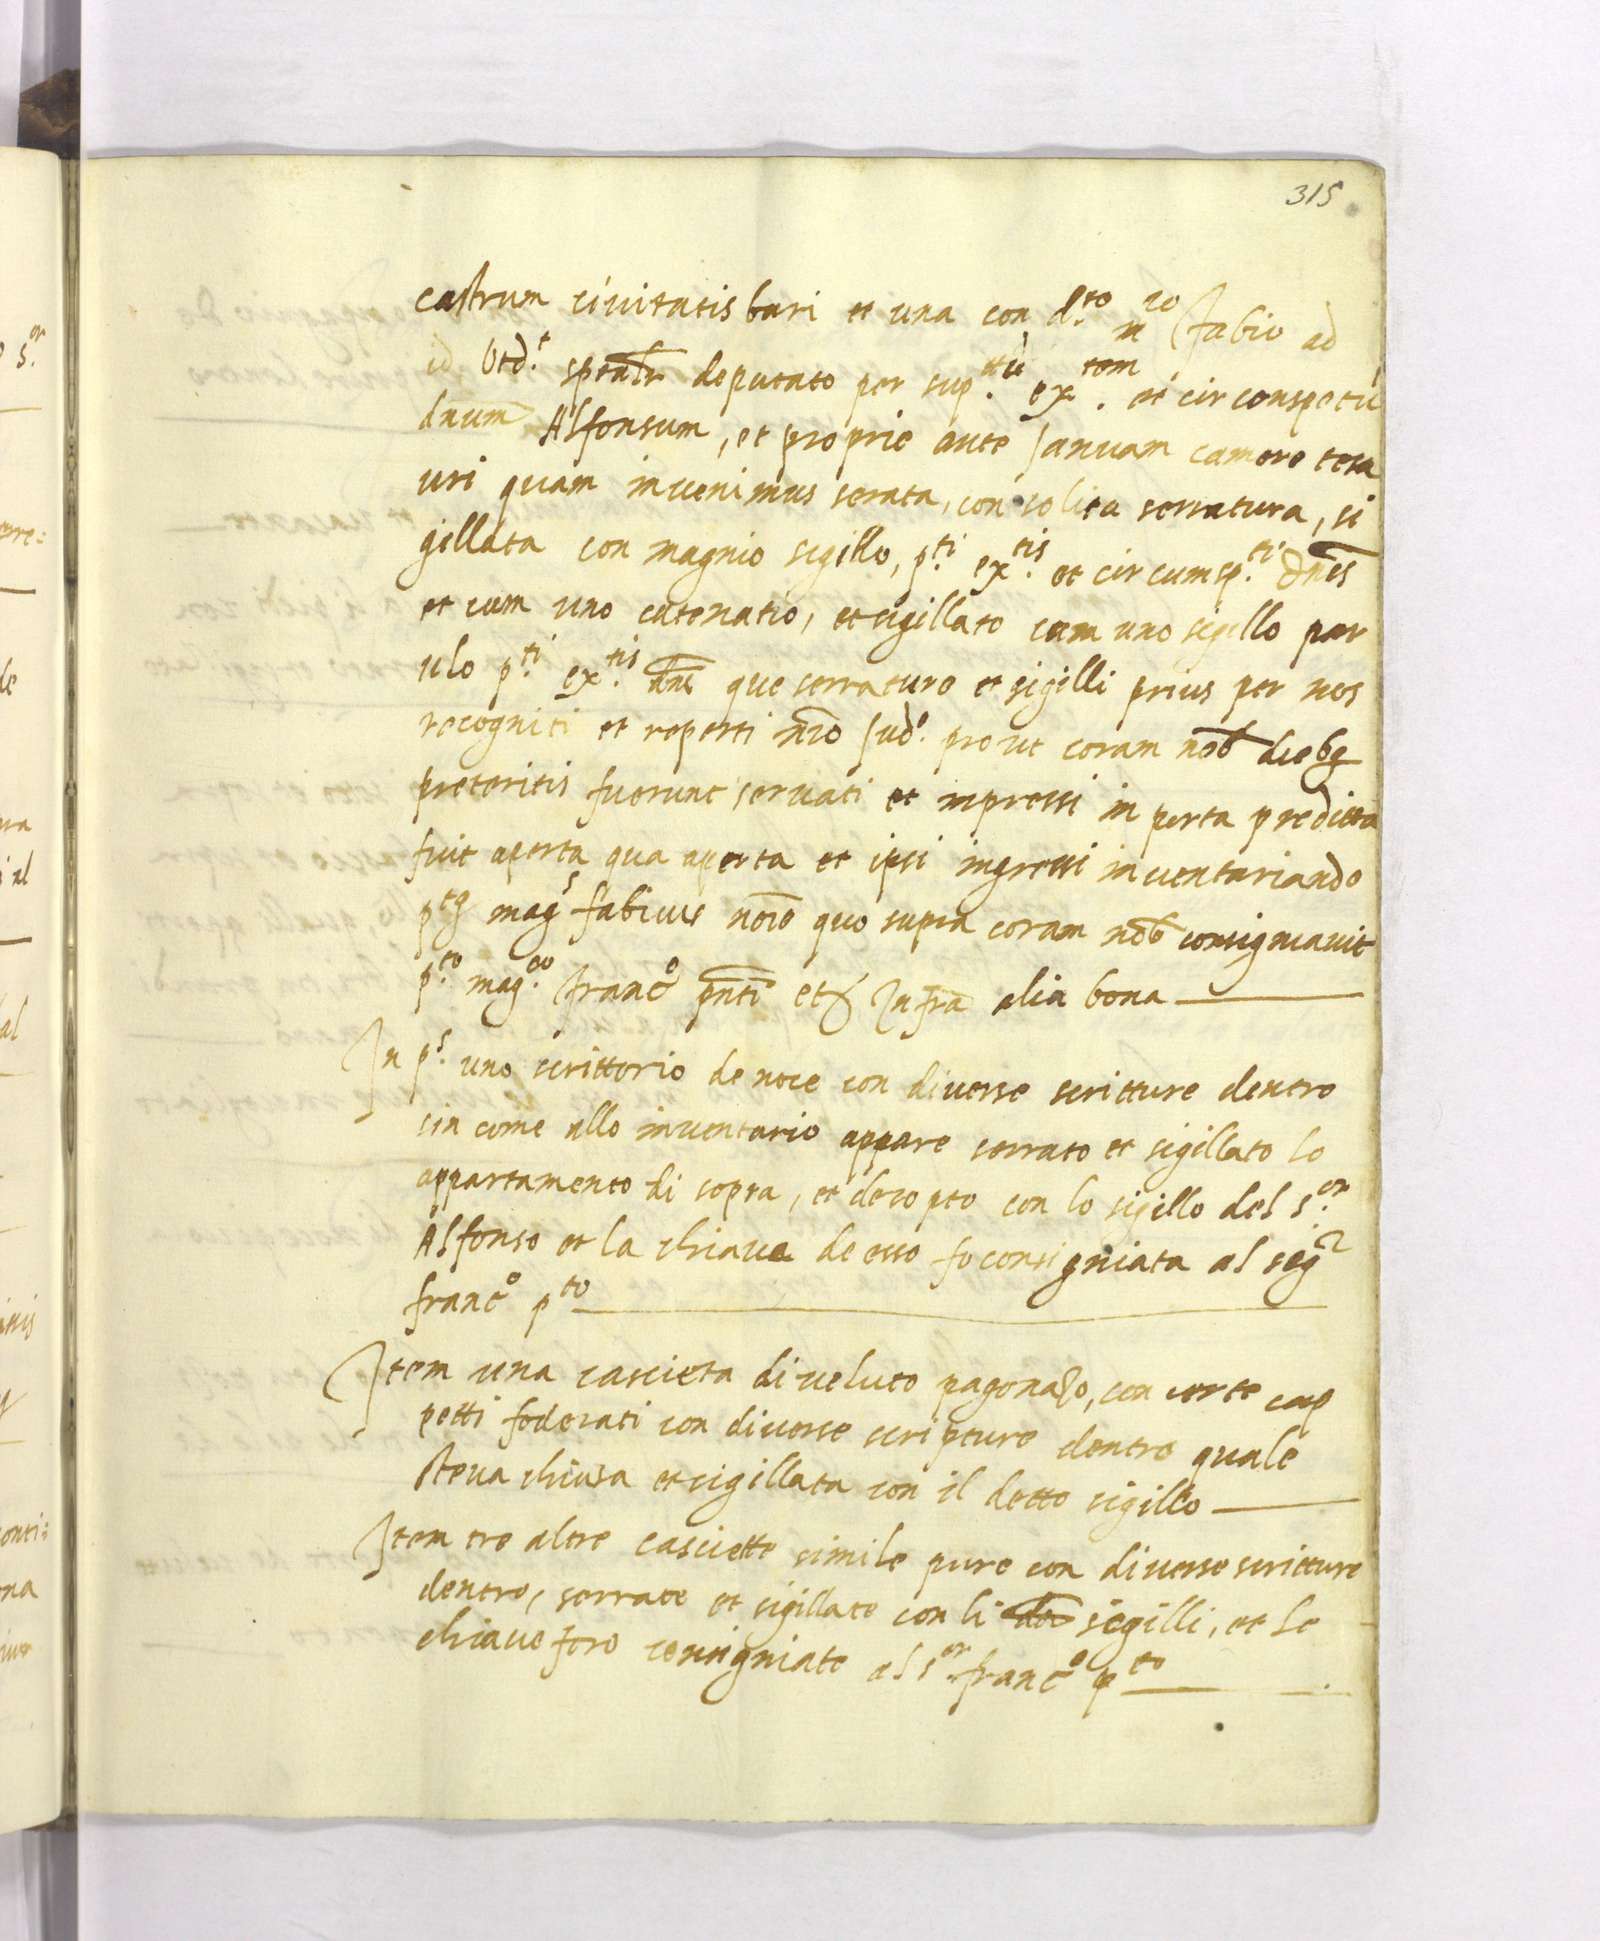 315
castrum ciuitatis bari et una con d.to m.co fabio ad
id Utd.r sptalr deputato per sup.tu ex.tem et circonspetu
dnum Alfonsum, et proprie ante Januam camere tesa
uri quam inuenimus serata, con solita serratura, si
gillata con magnio sigillo, p.ti ex.tis et circumsp.ti dnis
et cum uno catenatio, et sigillato cum uno sigillo par
ulo p.ti ex.tis dni que serrature et sigilli prius per nos
recogniti et reperti nro Jud.o prout coram nob dieb9
preteritis fuerunt seruati et inpressi in porta preditta
fuit aperta qua aperta et ipsi ingressi inuentariando
mag.s fabius noie quo supra coram nob consigniauit
p.to mag.co franc.o pnti et Infra alia bona
In p.s uno scrittorio de noce con diuerse scritture dentro
sin come allo inuentario appare serrato et sigillato lo
appartamento di sopra, et de sopto con lo sigillo del s.or
Alfonso et la chiaue de esso fo consigniata al seg.r
franc.o p.to
Item una cascieta di veluto pagonazo, con certe cap
petti foderati con diuerse scripture dentro quale
steua chiusa et sigillata con il detto sigillo
Item tre altre casciette simile pure con diuerse scritture
dentro, serrate et sigillate con li segilli, et le
chiaue foro consigniate al s.or franc.o p.to